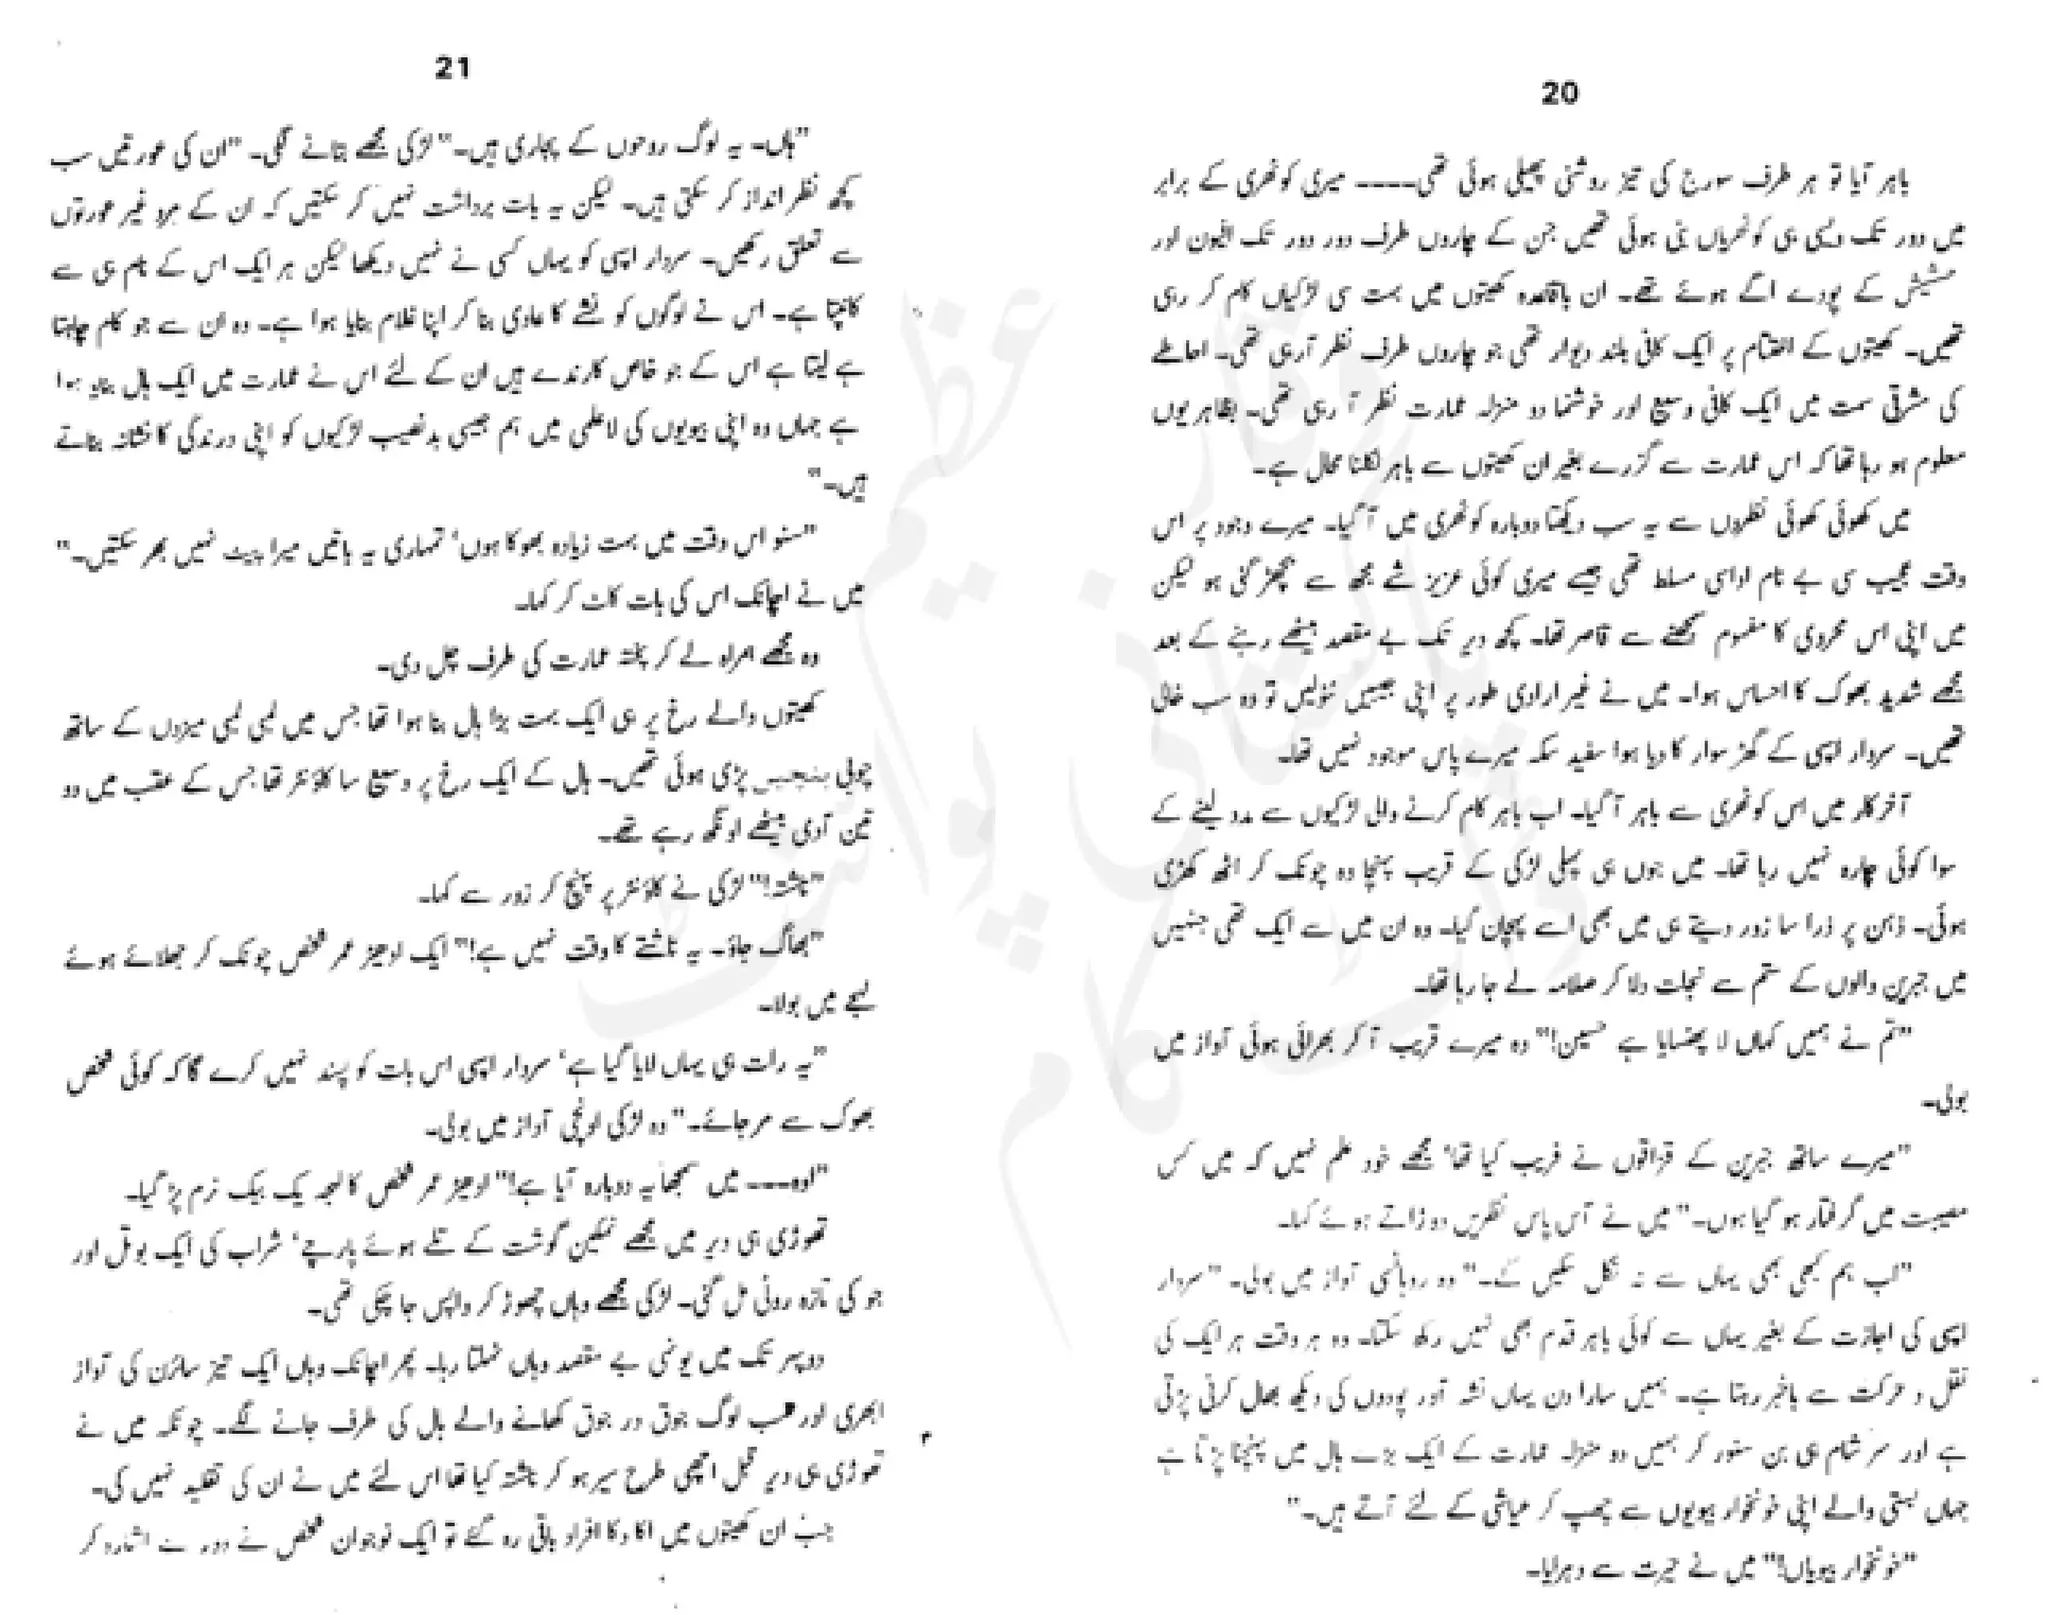 20
باہر آیا تو ہر طرف سورج کی تیز روشنی پھیلی ہوئی تھی۔۔۔۔ میری کوٹھری کے برابر
میں دور تک ویسی ہی کوٹھریاں بنی ہوئی تھیں جن کے چاروں طرف دور دور تک افیون اور
حشیش کے پودے اگے ہوئے تھے۔ ان باقاعدہ کھیتوں میں بہت سی لڑکیاں کام کر رہی
تھیں۔ کھیتوں کے اختتام پر ایک کافی بلند دیوار تھی جو چاروں طرف نظر آرہی تھی۔ احاطے
کی مشرقی سمت میں ایک کافی وسیع اور خوشنما دو منزلہ عمارت نظر آ رہی تھی۔ بظاہر یوں
معلوم ہو رہا تھا کہ اس عمارت سے گزرے بغیر ان کھیتوں سے باہر نکلنا محال ہے۔
میں کھوئی کھوئی نظروں سے یہ سب دیکھتا دوبارہ کوٹھری میں آ گیا۔ میرے وجود پر اس
وقت عجیب سی بے نام اداسی مسلط تھی جیسے میری کوئی عزیز شے مجھ سے بچھڑ گئی ہو لیکن
میں اپنی اس محرومی کا مفہوم سمجھنے سے قاصر تھا۔ کچھ دیر تک بے مقصد بیٹھے رہنے کے بعد
مجھے شدید بھوک کا احساس ہوا۔ میں نے غیر ارادی طور پر اپنی جیبیں ٹٹولیں تو وہ سب خالی
تھیں۔ سردار ایسی کے گھڑ سوار کا دیا ہوا سفید سکہ میرے پاس موجود نہیں تھا۔
آخر کار میں اس کوٹھری سے باہر آ گیا۔ اب باہر کام کرنے والی لڑکیوں سے مدد لینے کے
سوا کوئی چارہ نہیں رہا تھا۔ میں جوں ہی پہلی لڑکی کے قریب پہنچا وہ چونک کر اٹھ کھڑی
ہوئی۔ ذہن پر ذرا سا زور دیتے ہی میں بھی اسے پہچان گیا۔ وہ ان میں سے ایک تھی جنہیں
میں جبرین والوں کے ستم سے نجات دلا کر صلالہ لے جا رہا تھا۔
"تم نے ہمیں کہاں لا پھنسایا ہے حسین!" وہ میرے قریب آ کر بھرائی ہوئی آواز میں
بولی۔
"میرے ساتھ جبرین کے قزاقوں نے فریب کیا تھا' مجھے خود علم نہیں کہ میں کس
مصیبت میں گرفتار ہو گیا ہوں۔" میں نے آس پاس نظریں دوڑاتے ہوئے کہا۔
"اب ہم کبھی بھی یہاں سے نہ نکل سکیں گے۔" وہ روہانسی آواز میں بولی۔ "سردار
ایسی کی اجازت کے بغیر یہاں سے کوئی باہر قدم بھی نہیں رکھ سکتا۔ وہ ہر وقت ہر ایک کی
نقل و حرکت سے باخبر رہتا ہے۔ ہمیں سارا دن یہاں نشہ آور پودوں کی دیکھ بھال کرنی پڑتی
ہے اور سر شام ہی بن سنور کر ہمیں دو منزلہ عمارت کے ایک بڑے ہال میں پہنچنا پڑتا ہے
جہاں بستی والے اپنی خونخوار بیویوں سے چھپ کر عیاشی کے لئے آتے ہیں۔"
"خونخوار بیویاں!" میں نے حیرت سے دہرایا۔
21
"ہاں۔ یہ لوگ روحوں کے پجاری ہیں۔" لڑکی مجھے بتانے لگی۔ "ان کی عورتیں سب
کچھ نظر انداز کر سکتی ہیں۔ لیکن یہ بات برداشت نہیں کر سکتیں کہ ان کے مرد غیر عورتوں
سے تعلق رکھیں۔ سردار ایسی کو یہاں کسی نے نہیں دیکھا لیکن ہر ایک اس کے نام ہی سے
کانپتا ہے۔ اس نے لوگوں کو نشے کا عادی بنا کر اپنا غلام بنایا ہوا ہے۔ وہ ان سے جو کام چاہتا
ہے لیتا ہے اس کے جو خاص کارندے ہیں ان کے لئے اس نے عمارت میں ایک ہال بنایا ہوا
ہے جہاں وہ اپنی بیویوں کی لاعلمی میں ہم جیسی بدنصیب لڑکیوں کو اپنی درندگی کا نشانہ بناتے
ہیں۔"
"سنو اس وقت میں بہت زیادہ بھوکا ہوں' تمہاری یہ باتیں میرا پیٹ نہیں بھر سکتیں۔"
میں نے اچانک اس کی بات کاٹ کر کہا۔
وہ مجھے ہمراہ لے کر پختہ عمارت کی طرف چل دی۔
کھیتوں والے رخ پر ہی ایک بہت بڑا ہال بنا ہوا تھا جس میں لمبی لمبی میزوں کے ساتھ
چوبی بنچیں پڑی ہوئی تھیں۔ ہال کے ایک رخ پر وسیع سا کاؤنٹر تھا جس کے عقب میں دو
تین آدمی بیٹھے اونگھ رہے تھے۔
"ناشتہ!" لڑکی نے کاؤنٹر پر پہنچ کر زور سے کہا۔
"بھاگ جاؤ۔ یہ ناشتے کا وقت نہیں ہے!" ایک ادھیڑ عمر شخص چونک کر جھلائے ہوئے
لہجے میں بولا۔
"یہ رات ہی یہاں لایا گیا ہے' سردار ایسی اس بات کو پسند نہیں کرے گا کہ کوئی شخص
بھوک سے مر جائے۔" وہ لڑکی اونچی آواز میں بولی۔
"اوہ۔۔۔ میں سمجھا یہ دوبارہ آیا ہے!" ادھیڑ عمر شخص کا لہجہ یک بیک نرم پڑ گیا۔
تھوڑی ہی دیر میں مجھے نمکین گوشت کے تلے ہوئے پارچے' شراب کی ایک بوتل اور
جو کی تازہ روٹی مل گئی۔ لڑکی مجھے وہاں چھوڑ کر واپس جا چکی تھی۔
دوپہر تک میں یونہی بے مقصد وہاں ٹہلتا رہا۔ پھر اچانک وہاں ایک تیز سائرن کی آواز
ابھری اور سب لوگ جوق در جوق کھانے والے ہال کی طرف جانے لگے۔ چونکہ میں نے
تھوڑی ہی دیر قبل اچھی طرح سیر ہو کر ناشتہ کیا تھا اس لئے میں نے ان کی تقلید نہیں کی۔
جب ان کھیتوں میں اکا دکا افراد باقی رہ گئے تو ایک نوجوان شخص نے دور سے اشارہ کر
وقار عظیم
پاکستانی پوائنٹ
ڈاٹ کام